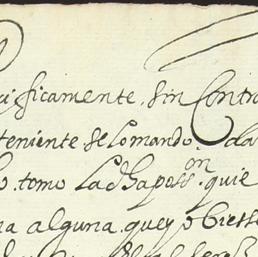 ficamente, sin Contra
teniente se lo mando. da
o. tomo La dha poss.on quie
na alguna. que y o biesse